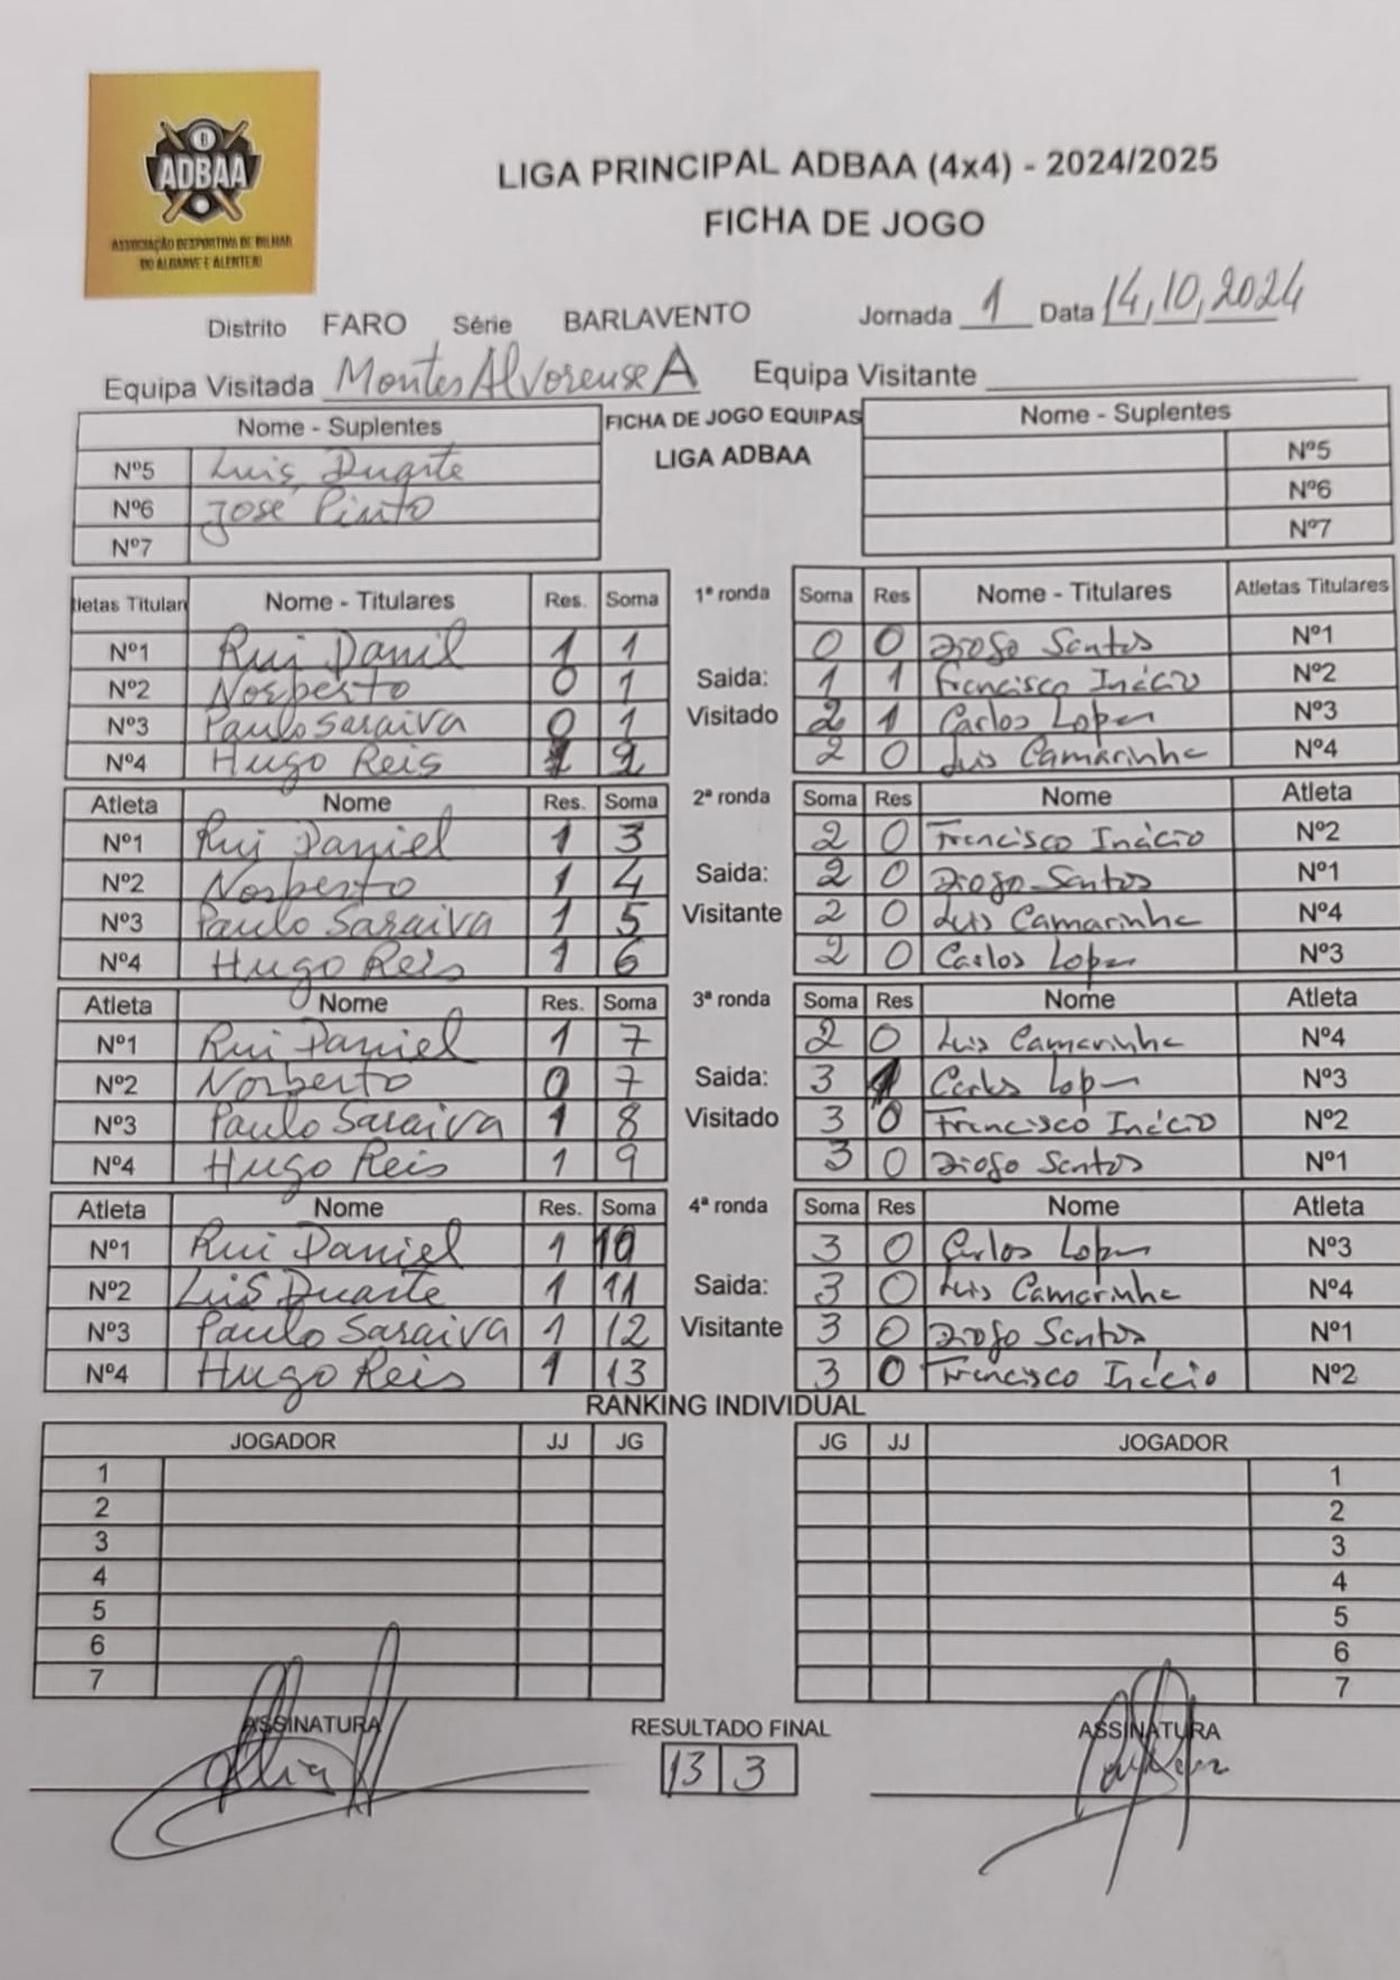 ADBAA
ASSOCIAÇÃO DESPORTIVA DE BILHAR
DO ALGARVE E ALENTEJO
LIGA PRINCIPAL ADBAA (4x4) - 2024/2025
FICHA DE JOGO
Distrito FARO Série BARLAVENTO Jornada 1 Data 14,10,2024
Equipa Visitada Montes Alvorense A Equipa Visitante
Nome - Suplentes FICHA DE JOGO EQUIPAS Nome - Suplentes
LIGA ADBAA
Nº5 Luis Duarte Nº5
Nº6 José Pinto Nº6
Nº7 Nº7
letas Titular Nome - Titulares Res. Soma 1ª ronda Soma Res Nome - Titulares Atletas Titulares
Nº1 Rui Danil 1 1 0 0 Diogo Santos Nº1
Nº2 Norberto 0 1 Saida: 1 1 Francisco Inácio Nº2
Nº3 Paulo Saraiva 0 1 Visitado 2 1 Carlos Lopes Nº3
Nº4 Hugo Reis 1 2 2 0 Luis Camarinha Nº4
Atleta Nome Res. Soma 2ª ronda Soma Res Nome Atleta
Nº1 Rui Daniel 1 3 2 0 Francisco Inácio Nº2
Nº2 Norberto 1 4 Saida: 2 0 Diogo Santos Nº1
Nº3 Paulo Saraiva 1 5 Visitante 2 0 Luis Camarinha Nº4
Nº4 Hugo Reis 1 6 2 0 Carlos Lopes Nº3
Atleta Nome Res. Soma 3ª ronda Soma Res Nome Atleta
Nº1 Rui Daniel 1 7 2 0 Luis Camarinha Nº4
Nº2 Norberto 0 7 Saida: 3 1 Carlos Lopes Nº3
Nº3 Paulo Saraiva 1 8 Visitado 3 0 Francisco Inácio Nº2
Nº4 Hugo Reis 1 9 3 0 Diogo Santos Nº1
Atleta Nome Res. Soma 4ª ronda Soma Res Nome Atleta
Nº1 Rui Daniel 1 10 3 0 Carlos Lopes Nº3
Nº2 Luis Duarte 1 11 Saida: 3 0 Luis Camarinha Nº4
Nº3 Paulo Saraiva 1 12 Visitante 3 0 Diogo Santos Nº1
Nº4 Hugo Reis 1 13 3 0 Francisco Inácio Nº2
RANKING INDIVIDUAL
JOGADOR JJ JG JG JJ JOGADOR
1 1
2 2
3 3
4 4
5 5
6 6
7 7
ASSINATURA RESULTADO FINAL ASSINATURA
13 3